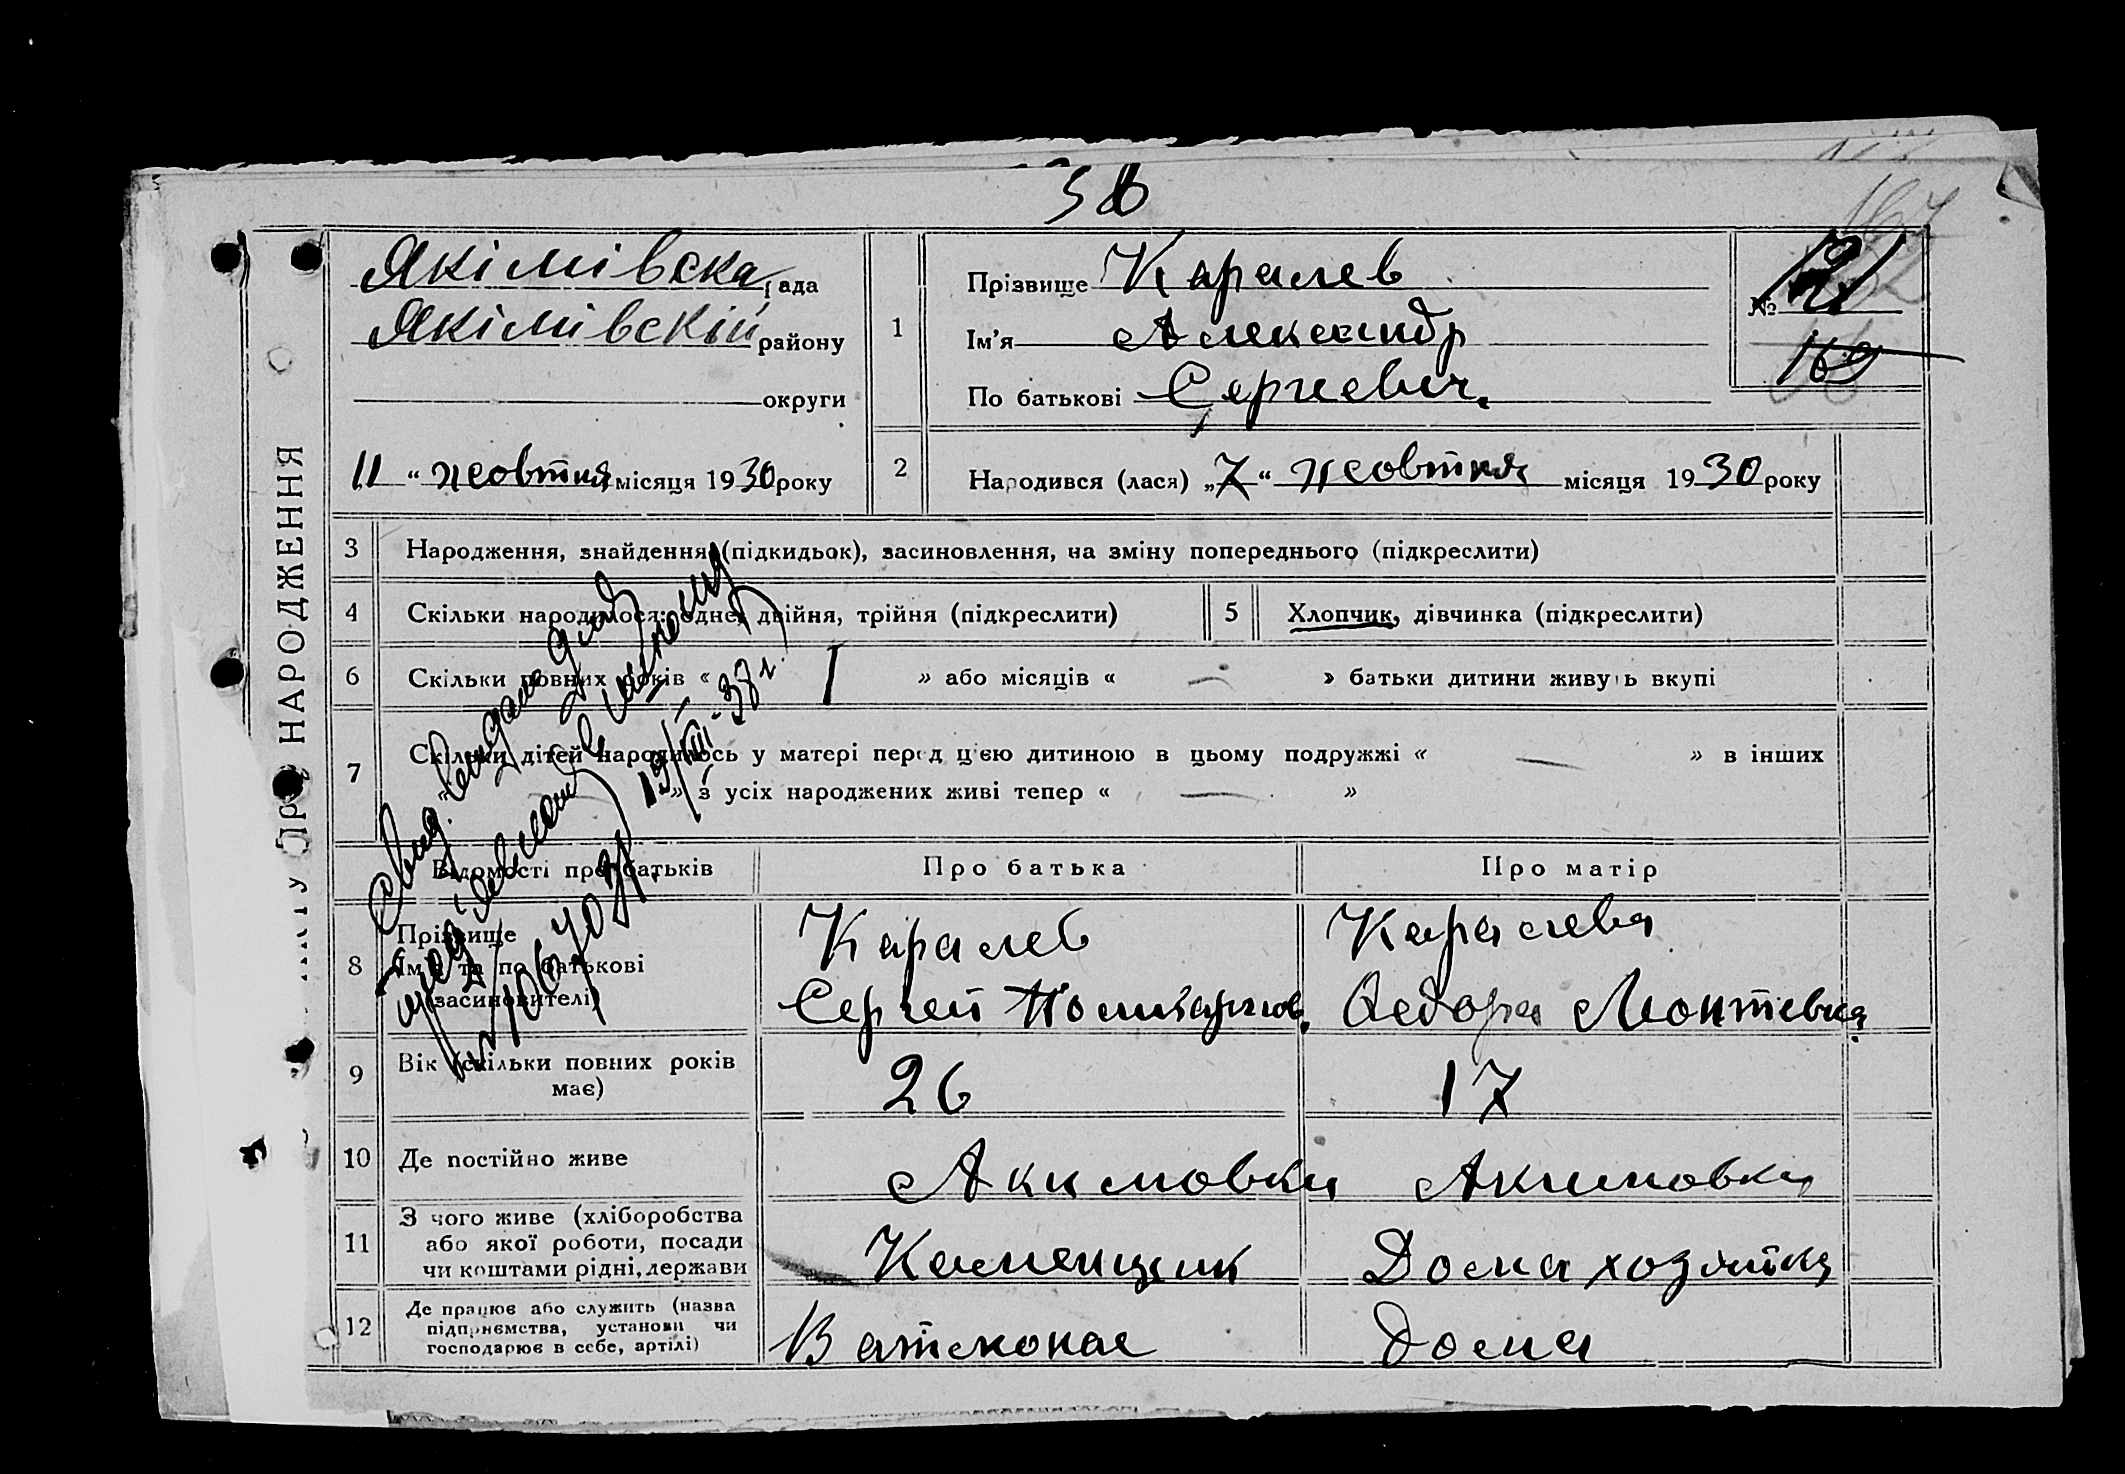 АКТУ ПРО НАРОДЖЕННЯ
Якімівска рада
Якімівскій району
округи
11 “ жовтня місяця 1930 року
1
Прізвище Каралев
Ім’я Александр
По батькові Сергеевич.
№
169
2
Народився (лася) „7“ жовтня місяця 1930 року
3 Народження, знайдення (підкидьок), засиновлення, на зміну попереднього (підкреслити)
4 Скільки народилося: одне, двійня, трійня (підкреслити)
5 Хлопчик, дівчинка (підкреслити)
6 Скільки повних років « 1 » або місяців « — » батьки дитини живуть вкупі
7 Скільки дітей народилось у матері перед цією дитиною в цьому подружжі « — » в інших
« » з усіх народжених живі тепер « — »
19/VIII-38 г.
Відомості про батьків
Про батька
Про матір
8
Прізвище
Ім’я та по батькові
(засиновителі)
Каралев
Сергей
Каралева
9
Вік (скільки повних років
має)
26
17
10 Де постійно живе
Акимовки
Акимовки
11
З чого живе (хліборобства
або якої роботи, посади
чи коштами рідні, держави
Каменщик
Дома хозяйка
12
Де працює або служить (назва
підприємства, установи чи
господарює в себе, артілі)
Дома